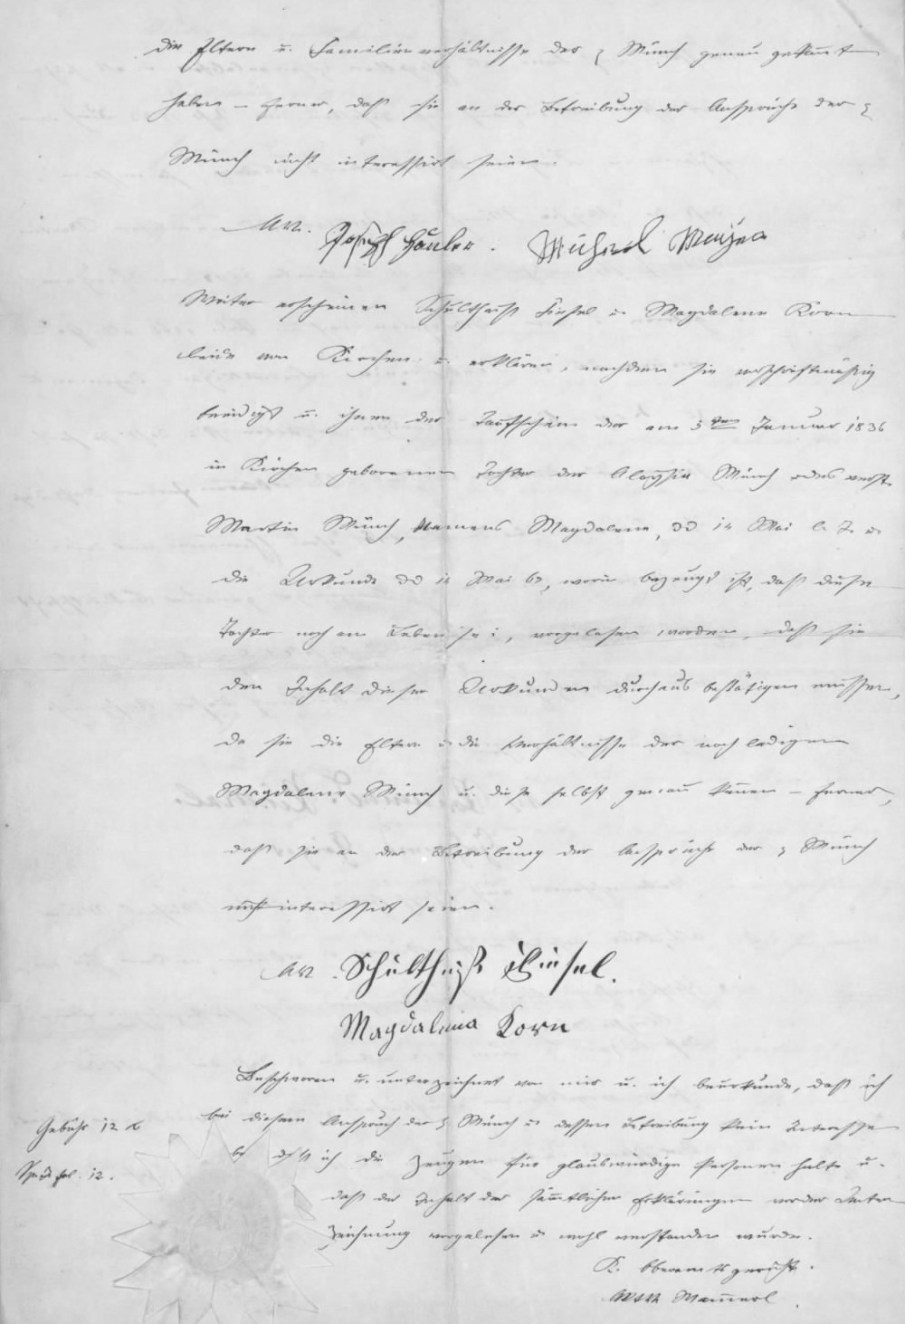 die Eltern u. Familienverhältnisse der Münch genau gekannt
haben – ferner, daß sie an der Betreibung der Ansprüche der
Münch nicht interessirt seien.
Joseph Michael
Weiter erscheinen Schultheiß u. Magdalena Korn
beide von Kirchen u. erklären, nachdem sie vorschriftmäßig
beeidigt u. ihnen der Taufschein der am 3ten Januar 1836
in Kirchen geborenen Tochter der Aloysia Münch des verst.
Martin Münch, Namens Magdalena, dd 14 Mai l. J. u.
die Urkunde dd 14 Mai, worin bezeugt ist, daß diese
Tochter noch am Leben sei, vorgelesen worden, daß sie
den Inhalt dieser Urkunden durchaus bestätigen müssen,
da sie die Eltern u. die Verhältnisse der noch ledigen
Magdalena Münch u. diese selbst genau kennen – ferner,
daß sie an der Betreibung der Ansprüche der Münch
nicht interessirt seien.
Schultheiß
Magdalena Korn
Beschworen u. unterzeichnet vor mir u. ich beurkunde, daß ich
bei diesem Anspruch der Münch u. dessen Betreibung kein Interesse
Gebühr 12 x
habe, daß ich die Zeugen für glaubwürdige Personen halte u.
12.
daß der Inhalt der sämtlichen Erklärungen vor der Unter
zeichnung vorgelesen u. wohl verstanden wurde.
K. Oberamtsgericht.